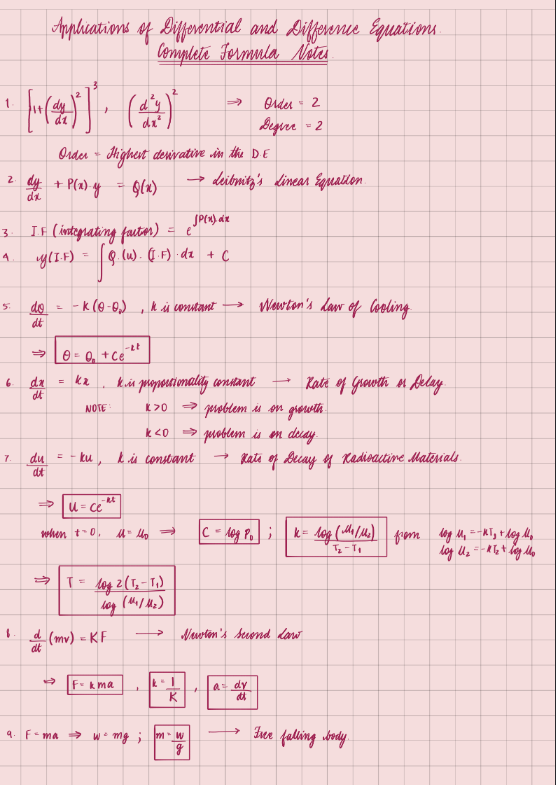 Applications of Differential and Difference Equations
Complete Formula Notes
1. [1+(dy/dx)²]³, (d²y/dx²)² ⇒ Order = 2
Degree = 2
Order = Highest derivative in the D.E
2. dy/dx + P(x).y = Q(x) → Leibnitz's Linear Equation.
3. I.F (integrating factor) = e^∫P(x).dx
4. y(I.F) = ∫Q.(u).(I.F).dx + C
5. dθ/dt = -k(θ-θ₀), k is constant → Newton's Law of Cooling
⇒ θ = θ₀ + Ce^-kt
6. dx/dt = kx, k is proportionality constant → Rate of Growth or Decay
NOTE: k>0 ⇒ problem is on growth.
k<0 ⇒ problem is on decay.
7. du/dt = -ku, k is constant → Rate of Decay of Radioactive Materials.
⇒ u = ce^-kt
when t=0, u=u₀ ⇒ C = log p₀ ; k = log(u₁/u₂)/T₂-T₁ from log u₁ = -kT₁ + log u₀
log u₂ = -kT₂ + log u₀
⇒ T = log 2(T₂-T₁)/log(u₁/u₂)
8. d/dt (mv) = KF → Newton's second Law
⇒ F = kma, k = 1/K, a = dv/dt
9. F = ma ⇒ w = mg ; m = w/g → Free falling body.